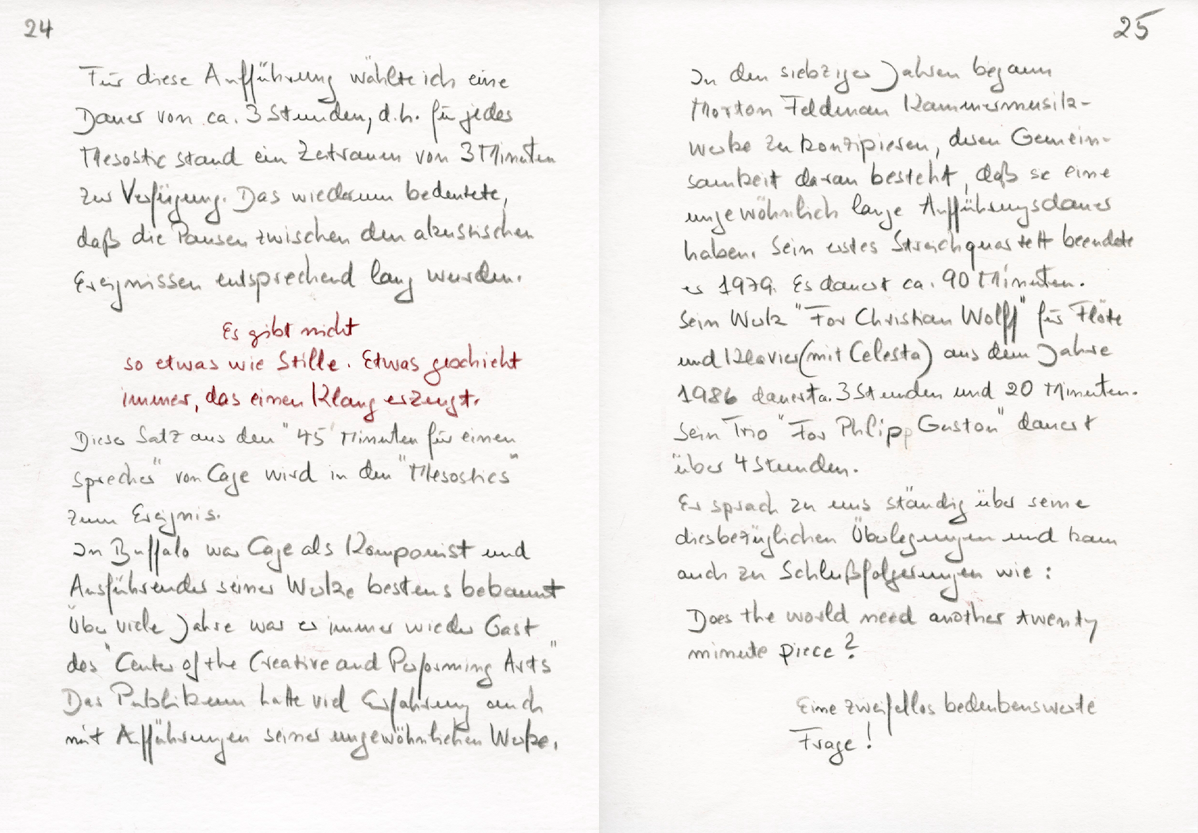 24
Für diese Aufführung wählte ich eine
Dauer von ca. 3 Stunden, d.h. für jedes
Mesostic stand ein Zeitraum von 3 Minuten
zur Verfügung. Das wiederum bedeutete,
daß die Pausen zwischen den akustischen
Ereignissen entsprechend lang wurden.
Es gibt nicht
so etwas wie Stille. Etwas geschieht
immer, das einen Klang erzeugt.
Dieser Satz aus den "45' Minuten für einen
Sprecher" von Cage wird in den "Mesostics"
zum Ereignis.
In Buffalo war Cage als Komponist und
Ausführender seiner Werke bestens bekannt
Über viele Jahre war er immer wieder Gast
des "Center of the Creative and Performing Arts"
Das Publikum hatte viel Erfahrung auch
mit Aufführungen seiner ungewöhnlichen Werke.
25
In den siebziger Jahren begann
Morton Feldman Kammermusik-
werke zu konzipieren, deren Gemein-
samkeit daran besteht, daß sie eine
ungewöhnlich lange Aufführungsdauer
haben. Sein erstes Streichquartett beendete
er 1979. Es dauert ca. 90 Minuten.
Sein Werk "For Christian Wolff" für Flöte
und Klavier (mit Celesta) aus dem Jahre
1986 dauert ca. 3 Stunden und 20 Minuten.
Sein Trio "For Philipp Guston" dauert
über 4 Stunden.
Er sprach zu uns ständig über seine
diesbezüglichen Überlegungen und kam
auch zu Schlußfolgerungen wie :
Does the world need another twenty
minute piece ?
Eine zweifellos bedenkenswerte
Frage !